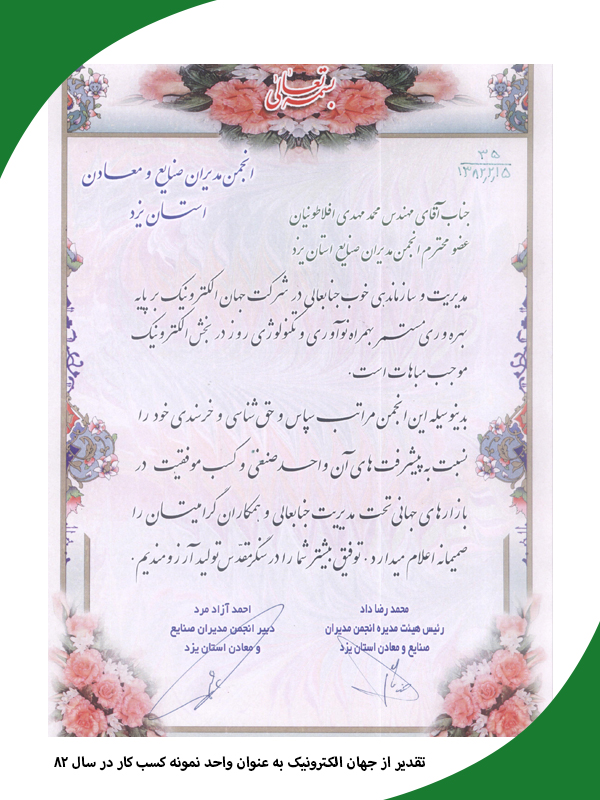 بسمه تعالی
انجمن مدیران صنایع و معادن
استان یزد
۳۵
۱۳۸۲/۲/۱۵
جناب آقای مهندس محمد مهدی افلاطونیان
عضو محترم انجمن مدیران صنایع استان یزد
مدیریت و سازماندهی خوب جنابعالی در شرکت جهان الکترونیک بر پایه
بهره وری مستمر بهمراه نوآوری و تکنولوژی روز در بخش الکترونیک
موجب مباهات است.
بدینوسیله این انجمن مراتب سپاس و حق شناسی و خرسندی خود را
نسبت به پیشرفت های آن واحد صنعتی و کسب موفقیت در
بازارهای جهانی تحت مدیریت جنابعالی و همکاران گرامیتان را
صمیمانه اعلام میدارد. توفیق بیشتر شما را در سنگر مقدس تولید آرزومندیم.
محمد رضا داد
رئیس هیئت مدیره انجمن مدیران
صنایع و معادن استان یزد
احمد آزاد مرد
دبیر انجمن مدیران صنایع
و معادن استان یزد
تقدیر از جهان الکترونیک به عنوان واحد نمونه کسب کار در سال ۸۲